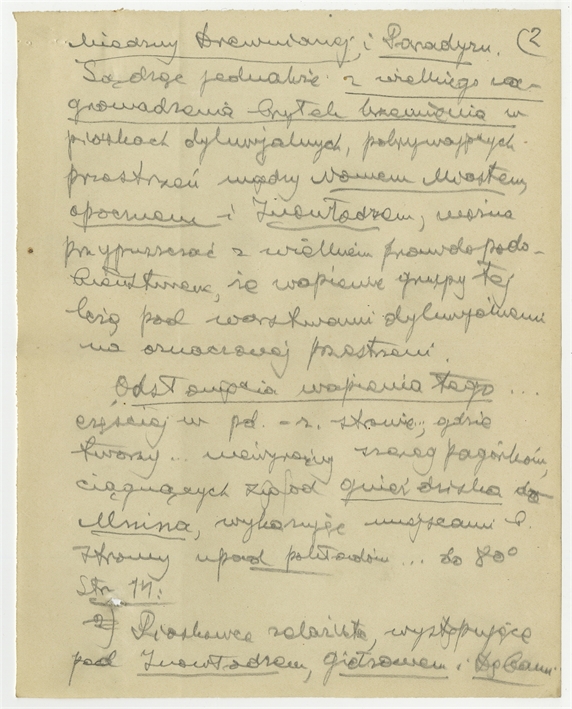 między Drewnianą, i Paradyżu. (2
Sądząc jednakże z wielkiego na-
gromadzenia brył krzemienia w
piaskach dyluwjalnych, pokrywających
przestrzeń między Nowem Miastem,
Opocznem i Inowłodzem, można
przypuszczać z wielkiem prawdopodo-
bieństwem, że wapienie grupy tej
leżą pod warstwami dyluwjalnemi
na oznaczonej przestrzeni.
Odsłonięcia wapienia tego ...
częściej w pd. - z. stronie, gdzie
tworzy ... szereg pagórków,
ciągnących się od Gnieździska do
Mnina, wykazując miejscami b.
stromy upad pokładów ... do 80°
Str. 14:
2) Piaskowce żelaziste, występujące
pod Inowłodzem, i